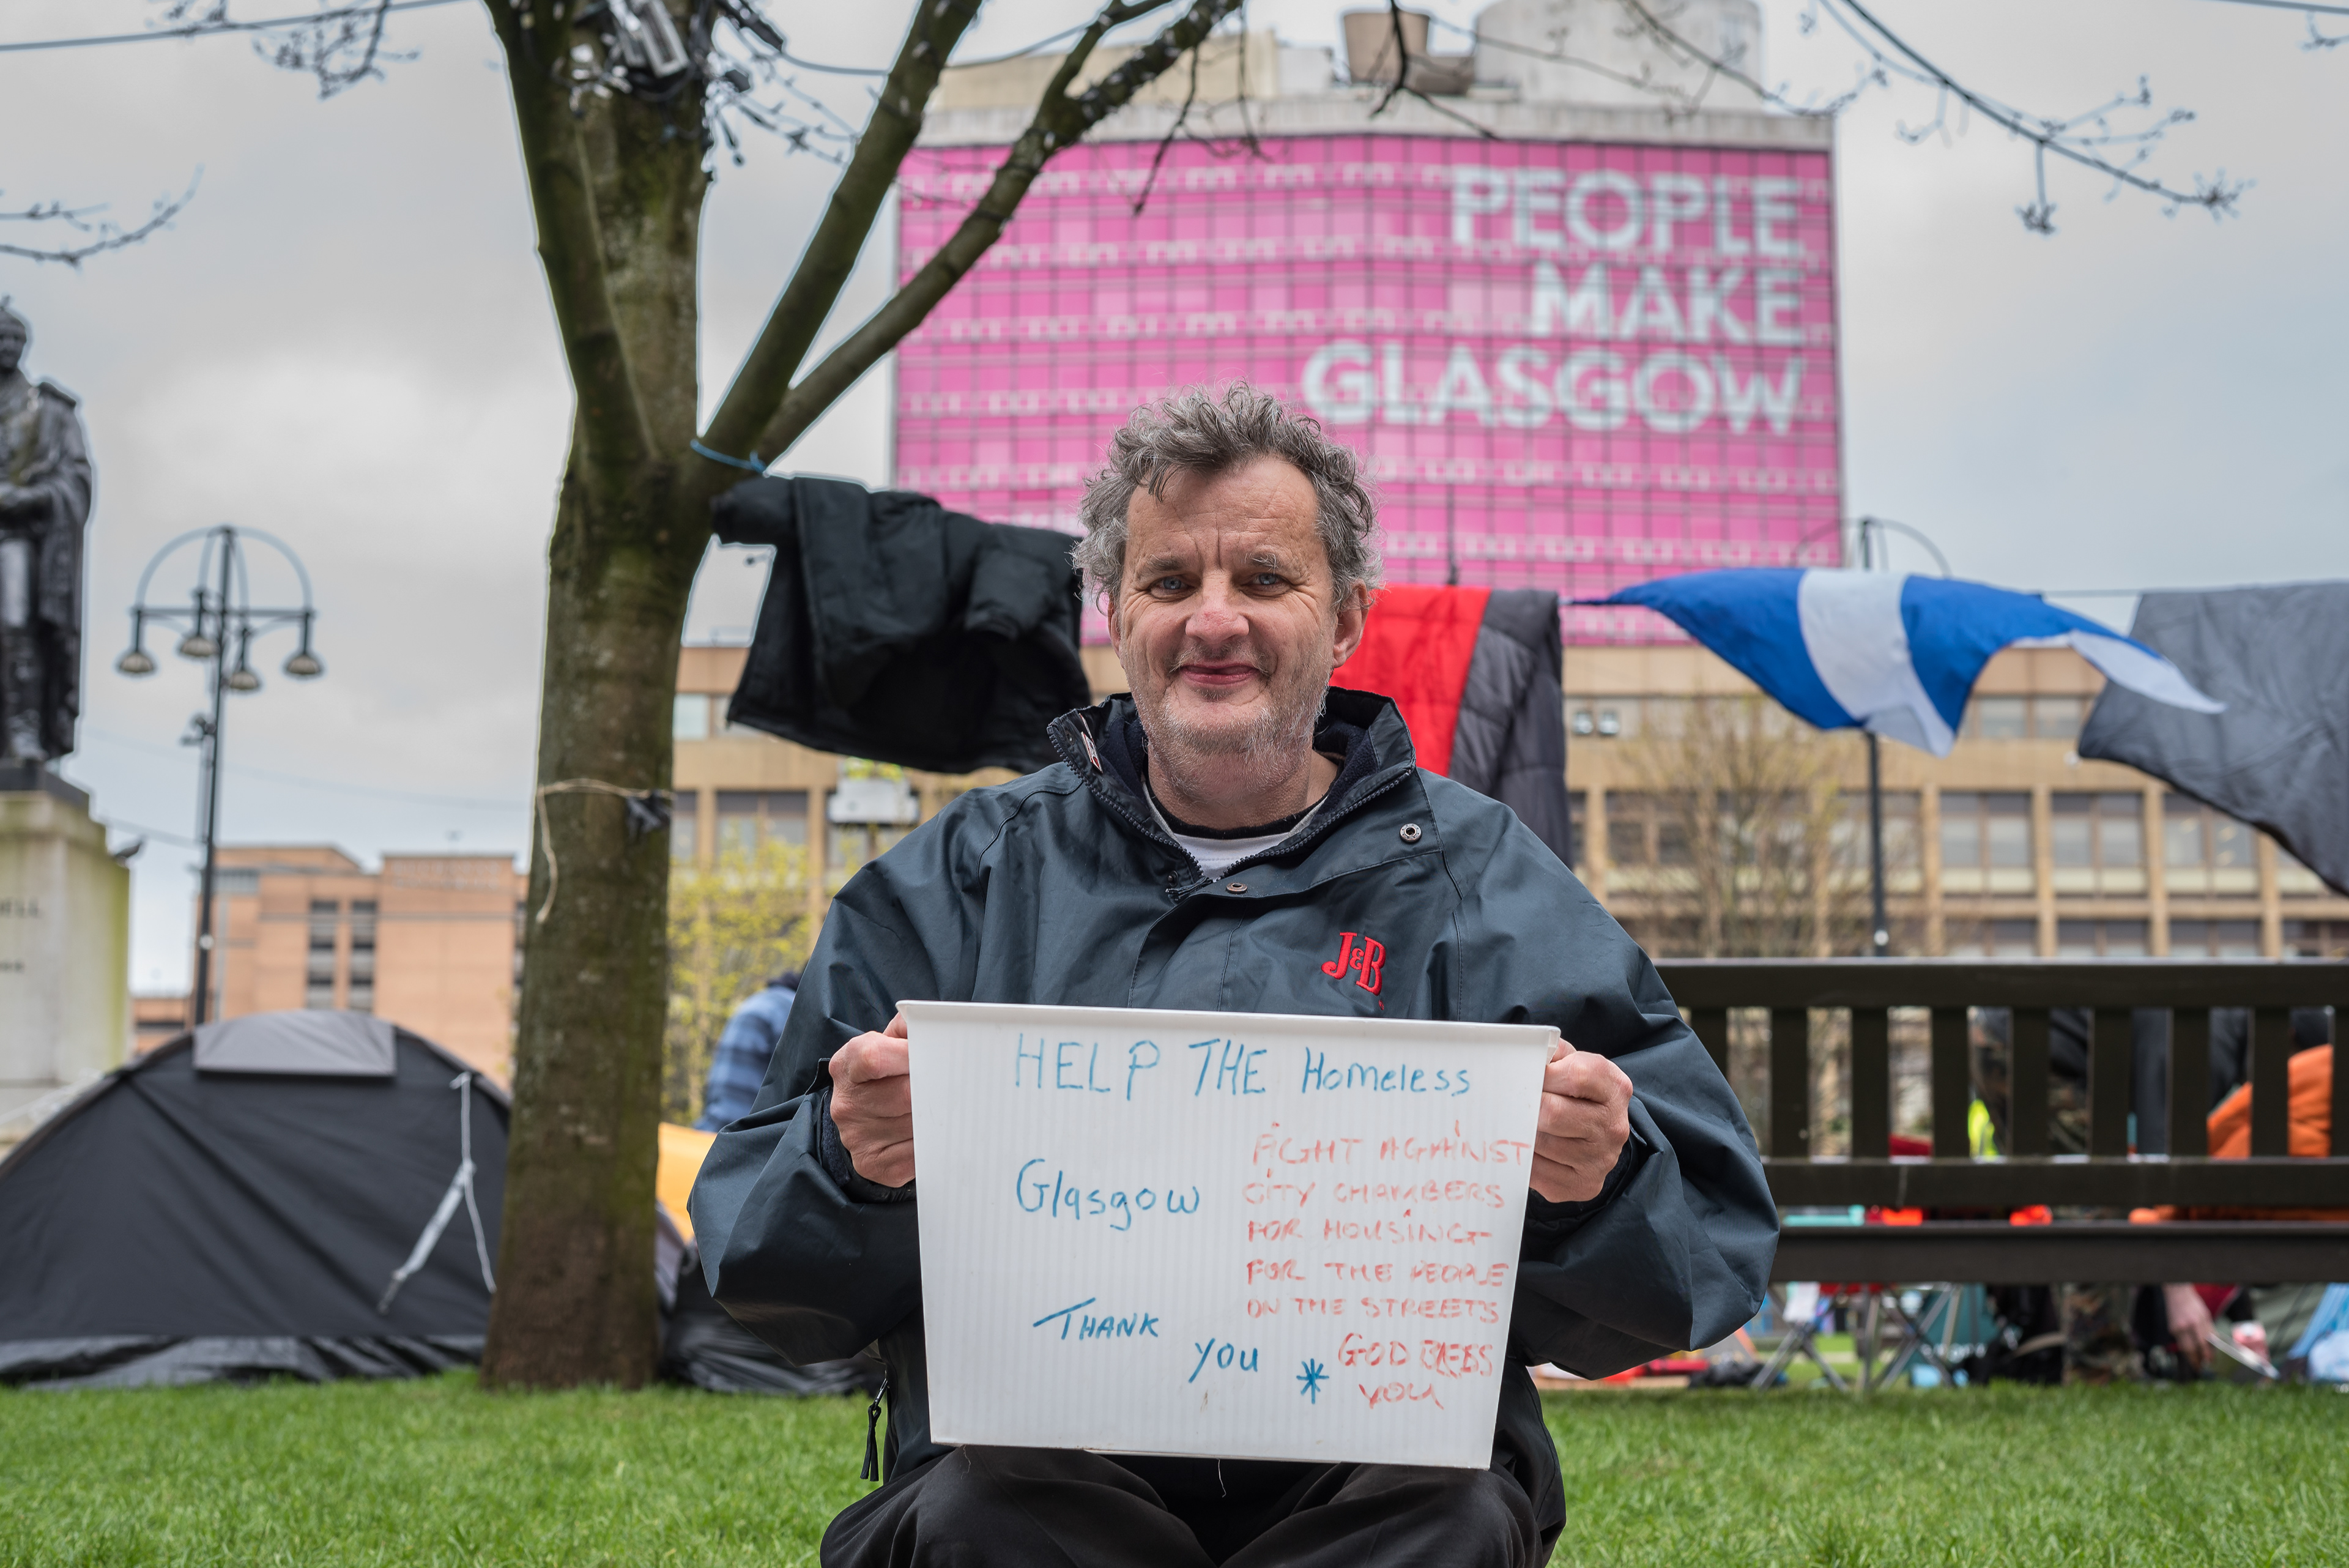 PEOPLE
MAKE
GLASGOW
J&B
HELP THE Homeless
Glasgow
THANK
YOU *
FIGHT AGAINST
CITY CHAMBERS
FOR HOUSING
FOR THE PEOPLE
ON THE STREETS
GOD BLESS
YOU